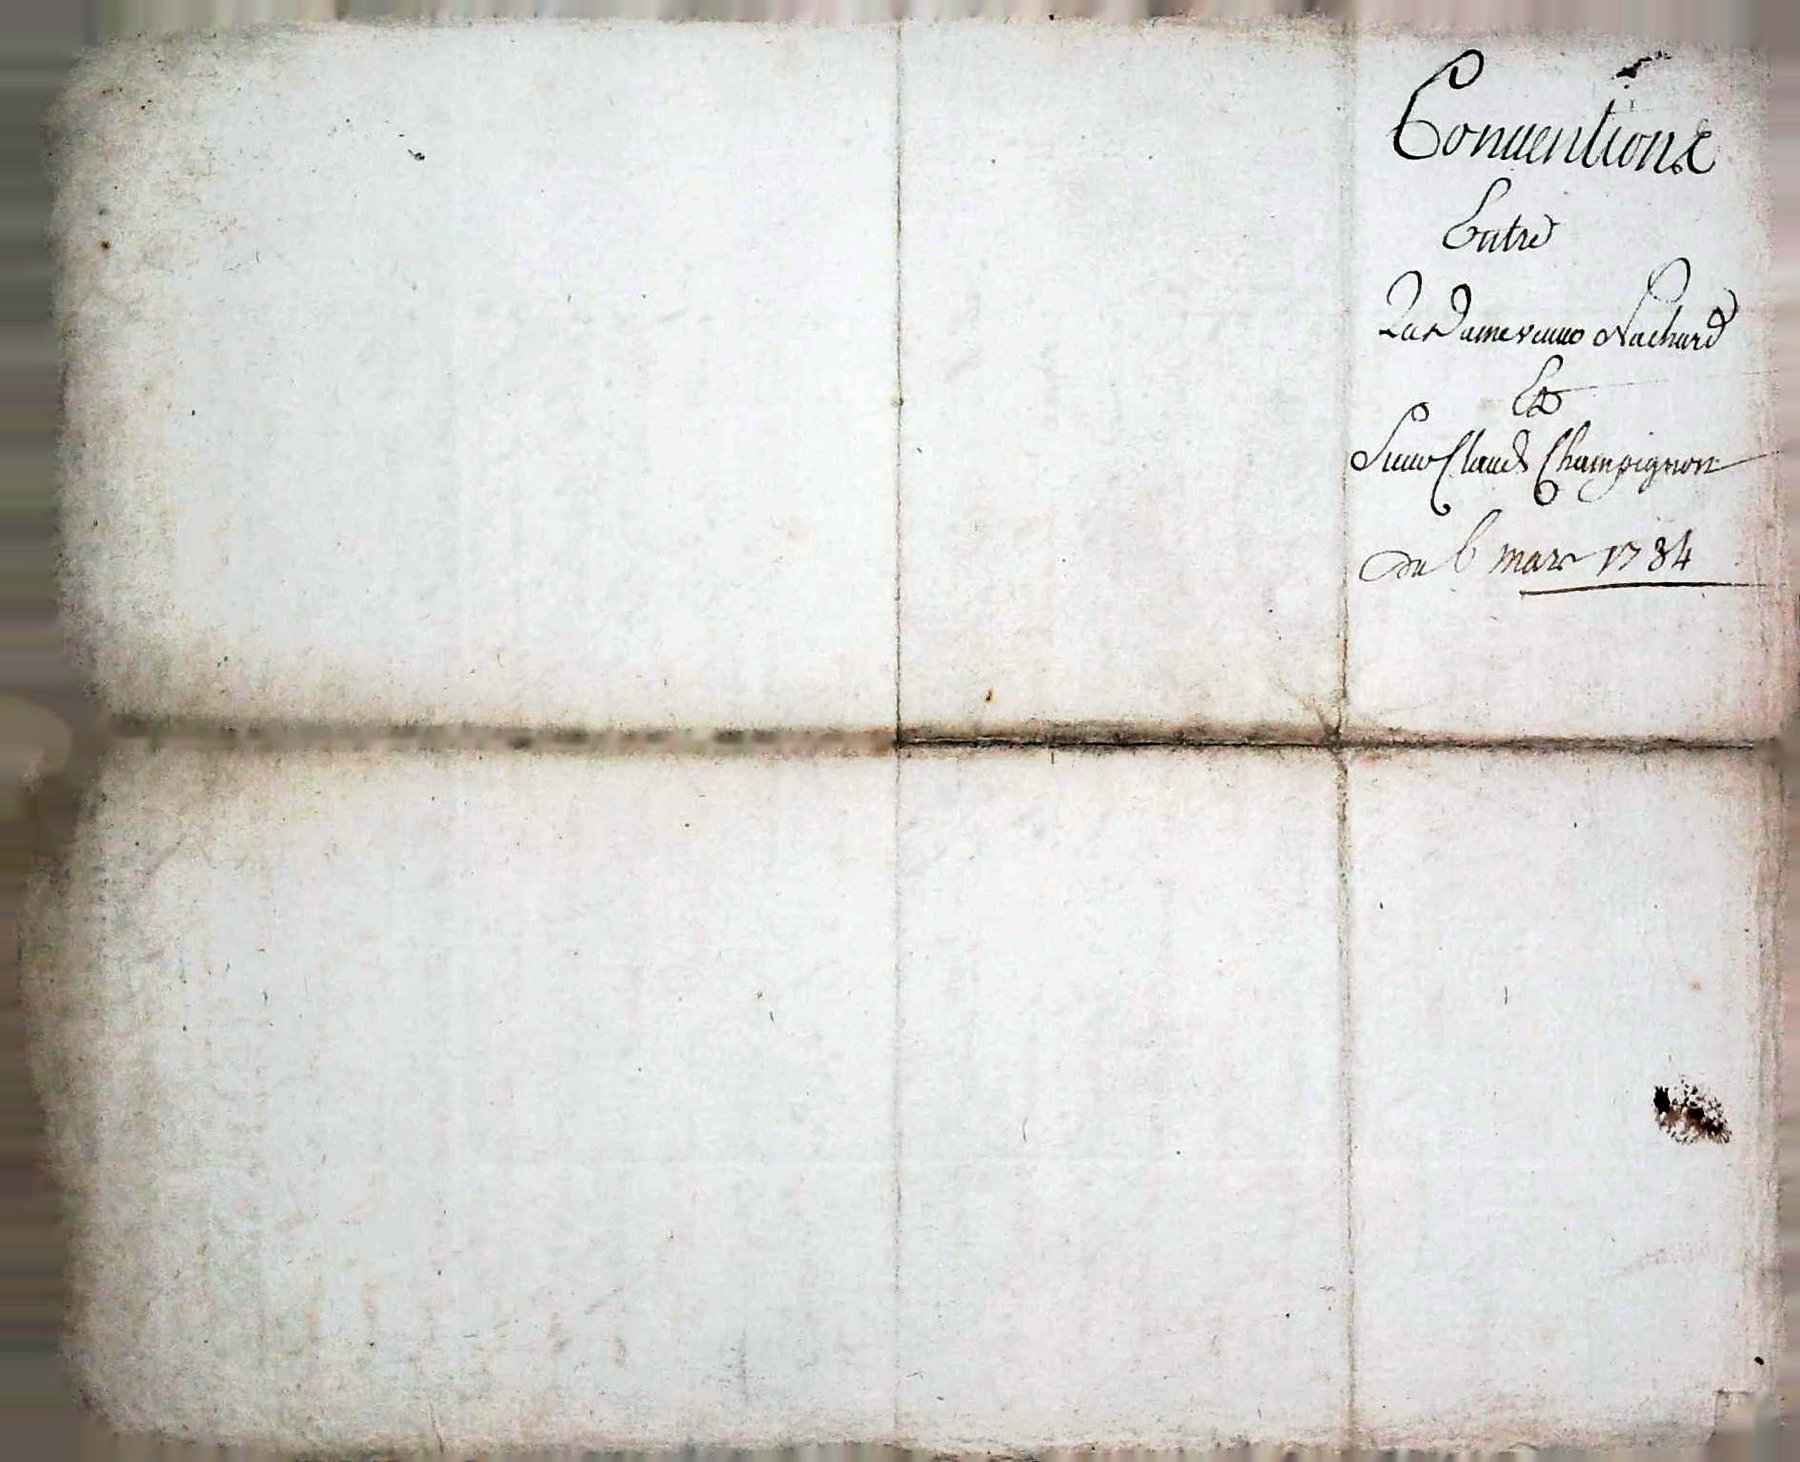 Conventions
Entre
La Dame veuve Nachard
Et
Claude Champignon
du 6 mars 1784